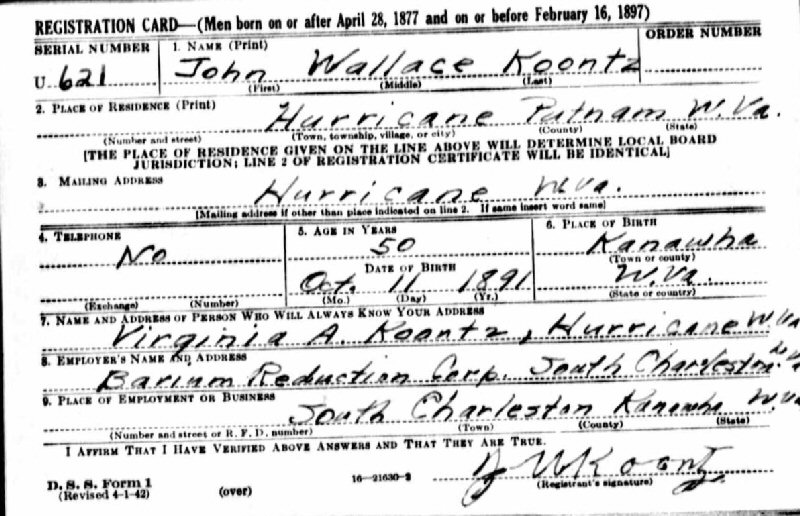 REGISTRATION CARD—(Men born on or after April 28, 1877 and on or before February 16, 1897)
SERIAL NUMBER 1. NAME (Print) ORDER NUMBER
U 621 John Wallace Koontz
(First) (Middle) (Last)
2. PLACE OF RESIDENCE (Print)
Hurricane Putnam W.Va.
(Number and street) (Town, township, village, or city) (County) (State)
[THE PLACE OF RESIDENCE GIVEN ON THE LINE ABOVE WILL DETERMINE LOCAL BOARD
JURISDICTION; LINE 2 OF REGISTRATION CERTIFICATE WILL BE IDENTICAL]
3. MAILING ADDRESS
Hurricane W.Va.
[Mailing address if other than place indicated on line 2. If same insert word same]
4. TELEPHONE 5. AGE IN YEARS 6. PLACE OF BIRTH
No 50 Kanawha
DATE OF BIRTH (Town or county)
Oct. 11 1891 W.Va.
(Exchange) (Number) (Mo.) (Day) (Yr.) (State or country)
7. NAME AND ADDRESS OF PERSON WHO WILL ALWAYS KNOW YOUR ADDRESS
Virginia A. Koontz, Hurricane W.Va
8. EMPLOYER'S NAME AND ADDRESS
Barium Reduction Corp. South Charleston W.Va
9. PLACE OF EMPLOYMENT OR BUSINESS
South Charleston Kanawha W.Va
(Number and street or R. F. D. number) (Town) (County) (State)
I AFFIRM THAT I HAVE VERIFIED ABOVE ANSWERS AND THAT THEY ARE TRUE.
J W Koontz
D. S. S. Form 1
(Revised 4-1-42) (over) 16—21630-2 (Registrant's signature)